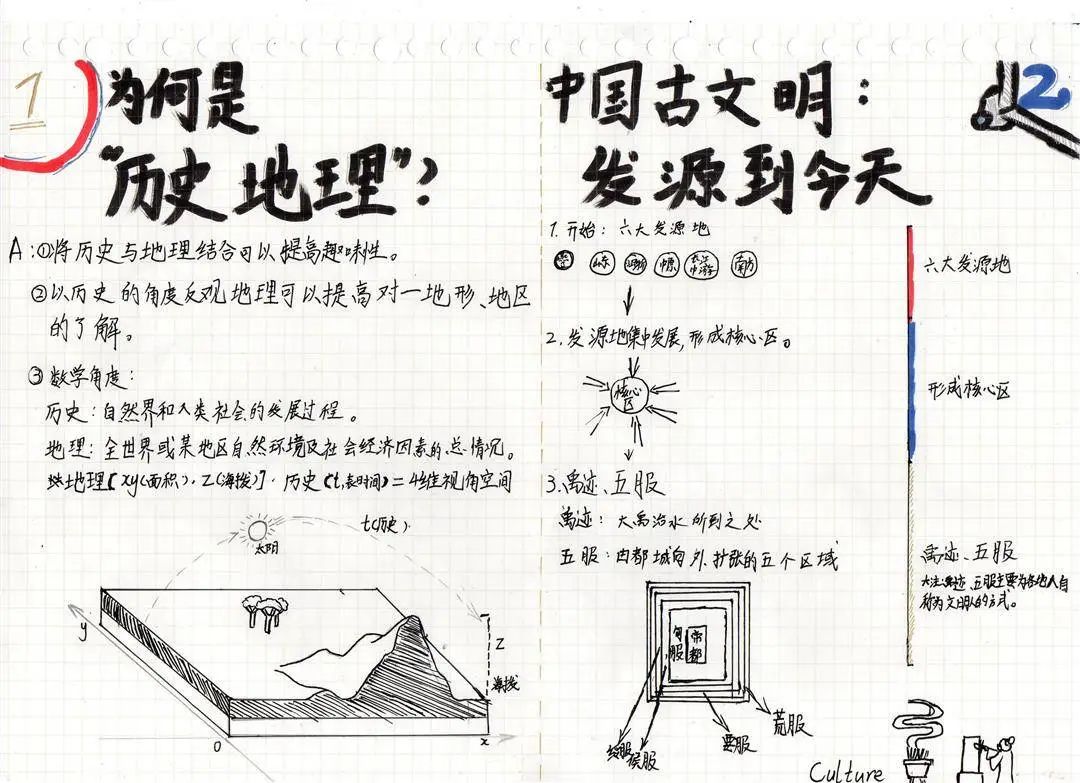 1
为何是
"历史地理"?
A:①将历史与地理结合可以提高趣味性。
②以历史的角度反观地理可以提高对一地形、地区
的了解。
③数学角度:
历史:自然界和人类社会的发展过程。
地理:全世界或某地区自然环境及社会经济因素的总情况。
地理[xy(面积),Z(海拔)]·历史(t,表时间)=4维视角空间
t(历史)
太阳
y
Z
海拔
0
x
2
中国古文明:
发源到今天
1.开始:六大发源地
山东
中原
长江中游
南方
2.发源地集中发展,形成核心区。
核心区
3.禹迹、五服
禹迹:大禹治水所到之处
五服:由都城向外扩张的五个区域
甸服
帝都
侯服
要服
荒服
六大发源地
形成核心区
禹迹、五服
禹迹、五服主要为各地人自
称为文明人的方式。
Culture